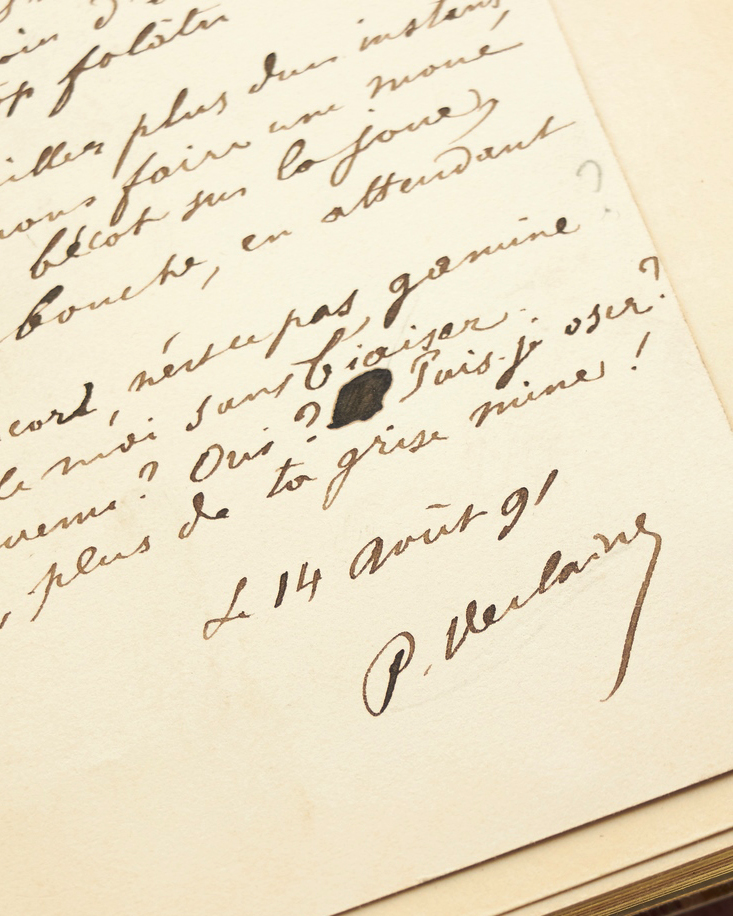 folâtre
plus d'un instant,
nous faire une moue
bécot sur la joue,
bouche, en attendant
n'est ce pas gamine ?
moi sans biaiser.
? Oui ? Puis-je oser ?
, plus de ta grise mine !
Le 14 Août 91
P. Verlaine